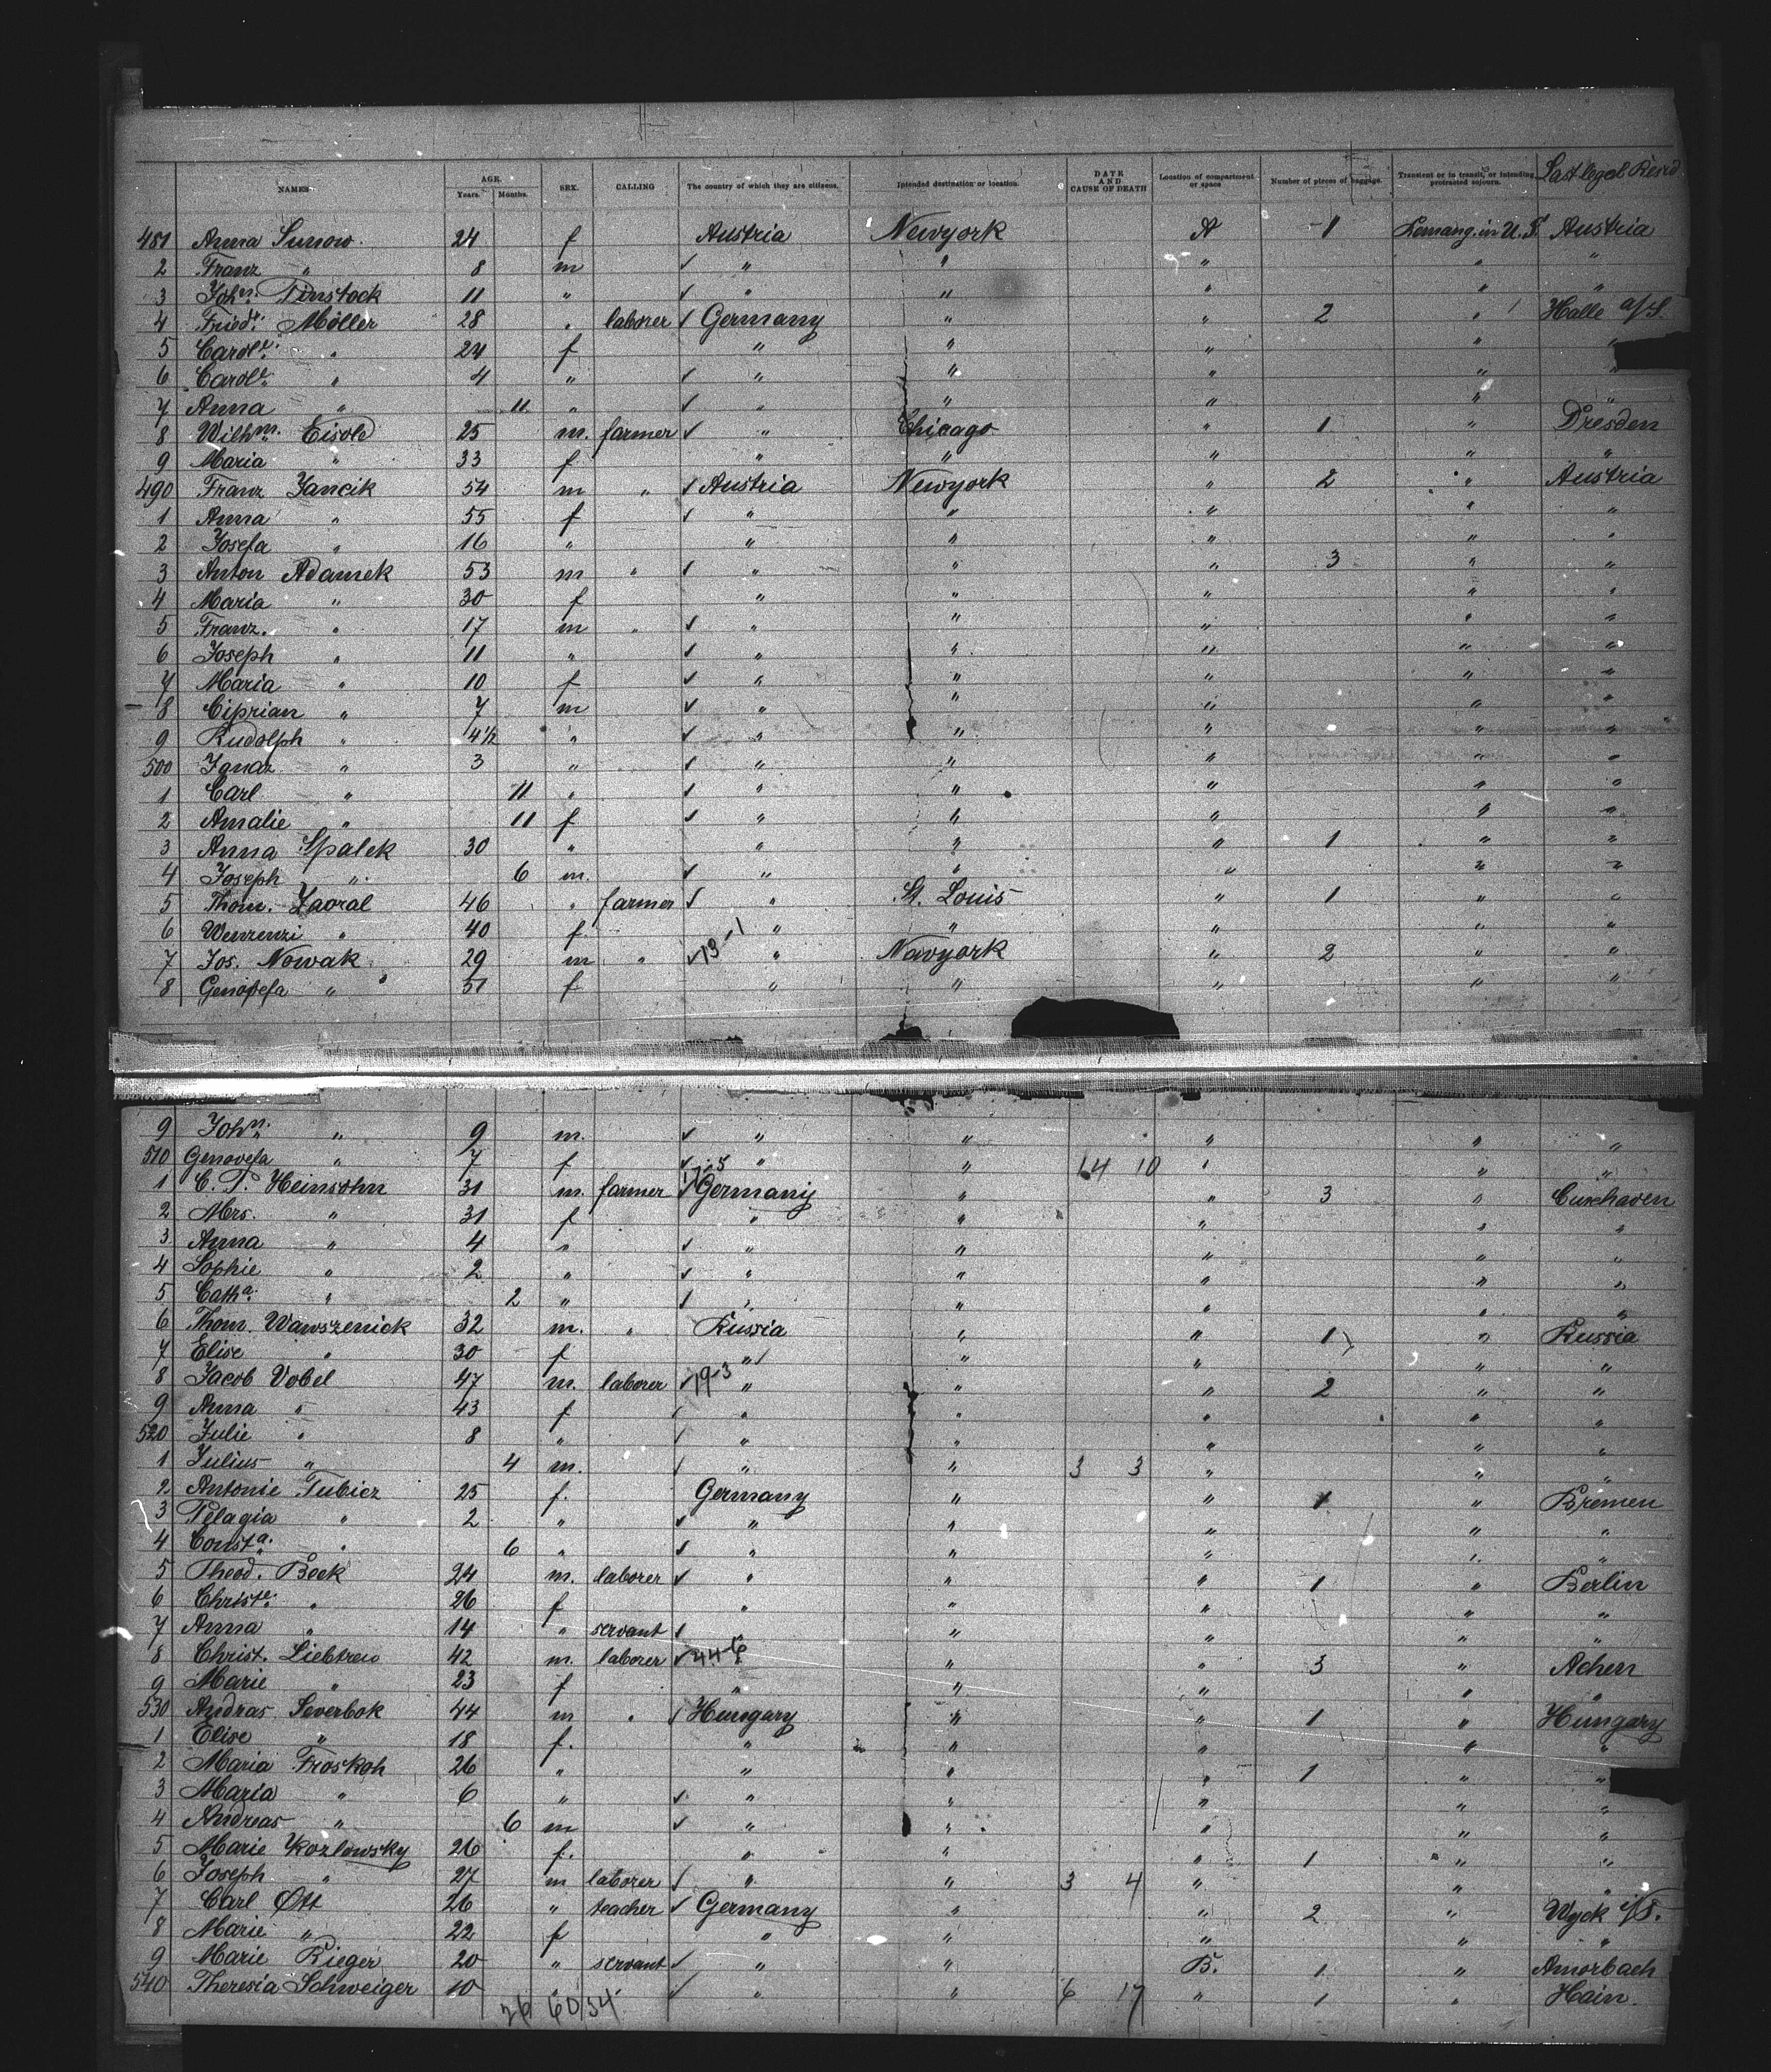 NAMES AGE. Years. Months. SEX. CALLING The country of which they are citizens. Intended destination or location. DATE AND CAUSE OF DEATH Location of compartment or space Number of pieces of baggage. Transient or in transit, or intending protracted sojourn. Last legal Resid
481 Anna Sunow. 24 f Austria Newyork A 1 in U.S. Austria
2 Franz " 8 m ✓ " " " " "
3 John. Pinstock 11 " ✓ " " " " "
4 Friedr. Möller 28 " laborer ✓ Germany " " 2 " Halle a/S.
5 Carole. " 24 f " " " " "
6 Carole. " 4 " ✓ " " " " "
7 Anna " 11 " ✓ " " " " "
8 Wilhm. Eisold 25 m. farmer ✓ " Chicago " 1 " Dresden
9 Maria " 33 f " " " " "
490 Franz Jancik 54 m " ✓ Austria Newyork " 2 " Austria
1 Anna " 55 f ✓ " " " " "
2 Josefa " 16 " " " " " "
3 Anton Adamek 53 m " ✓ " " " 3 " "
4 Maria " 30 f " " " " "
5 Franz. " 17 m " ✓ " " " " "
6 Joseph " 11 " ✓ " " " " "
7 Maria " 10 f ✓ " " " " "
8 Ciprian " 7 m ✓ " " " " "
9 Rudolph " 4½ " ✓ " " " " "
500 Ignaz " 3 " ✓ " " " " "
1 Carl " 11 " ✓ " " " " "
2 Amalie " 11 f ✓ " " " " "
3 Anna Spalek 30 " " " " 1 " "
4 Joseph " 6 m. ✓ " " " " "
5 Thom. Zaoral 46 " farmer ✓ " St. Louis " 1 " "
6 Wenzenzi " 40 f. " " " " "
7 Jos. Nowak 29 m " ✓ 13-1 " Newyork " 2 " "
8 Genofefa " 31 f " " " " "
9 John. " 9 m. ✓ " " " " "
510 Genovefa " 7 f ✓ " " 14 10 " " "
1 C. P. Heinsohn 31 m. farmer ✓ Germany " " 3 " Cuxhaven
2 Mrs. " 31 f " " " " "
3 Anna " 4 " ✓ " " " " "
4 Sophie " 2 " ✓ " " " " "
5 Catha. " 2 " ✓ " " " " "
6 Thom. Wawszenick 32 m. " Russia " " 1 " Russia
7 Elise " 30 f " ✓ " " " "
8 Jacob Vobel 47 m. laborer ✓ 19-3 " " " 2 " "
9 Anna " 43 f ✓ " " " " "
520 Julie " 8 " ✓ " " " " "
1 Julius " 4 m. ✓ " " 3 3 " " "
2 Antonie Tubicz 25 f. Germany " " 1 " Bremen
3 Pelagia " 2 " ✓ " " " " "
4 Consta. " 6 " ✓ " " " " "
5 Theod. Beck 24 m. laborer ✓ " " " 1 " Berlin
6 Christe. " 26 f " " " " "
7 Anna " 14 " servant ✓ " " " "
8 Christ. Liebtreu 42 m. laborer ✓ 44-6 " " 3 " Achen
9 Marie " 23 f " " " " "
530 Andras Severbok 44 m " ✓ Hungary " " 1 " Hungary
1 Elise " 18 f. " " " " "
2 Maria Froskoh 26 " " " " 1 " "
3 Maria " 6 " ✓ " " " " "
4 Andreas " 6 m ✓ " " " " "
5 Marie Kozlowsky 26 f. " " " 1 " "
6 Joseph " 27 m laborer ✓ " " 3 4 " " "
7 Carl Ott 26 " teacher ✓ Germany " " 2 " Wyck
8 Marie " 22 f " " " " "
9 Marie Rieger 20 " servant ✓ " " B. 1 " Amorbach
540 Theresia Schweiger 10 " ✓ " " 6 17 " 1 " Hain.
26 60/34